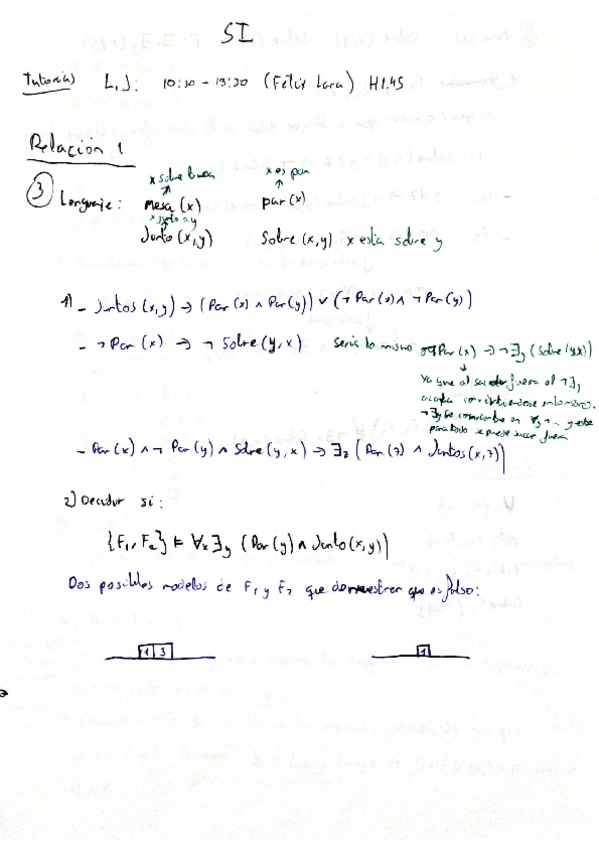 SI
Tutorías L, J: 10:30 - 13:30 (Félix Lara) H1.45
Relación 1
x sobre la mesa x es par
③ Lenguaje: mesa (x) par (x)
x junto a y
Junto (x,y) Sobre (x,y) x está sobre y
1) - Juntos (x,y) → (Par (x) ∧ Par(y)) ∨ (¬ Par(x) ∧ ¬ Par(y))
- ¬ Par (x) → ¬ Sobre (y, x) Sería lo mismo Par(x) → ¬∃y (Sobre(y,x))
Ya que al sacar fuera el ¬∃y
acaba convirtiéndose
¬∃y se convierte en ∀y¬... y este
para todo se puede sacar fuera
- Par(x) ∧ ¬ Par(y) ∧ Sobre(y, x) → ∃z (Par(z) ∧ Juntos(x,z))
2) Decidir si:
{F₁, F₂} ⊨ ∀x ∃y (Par(y) ∧ Junto(x,y))
Dos posibles modelos de F₁ y F₂ que demuestran que es falso:
1 3 1